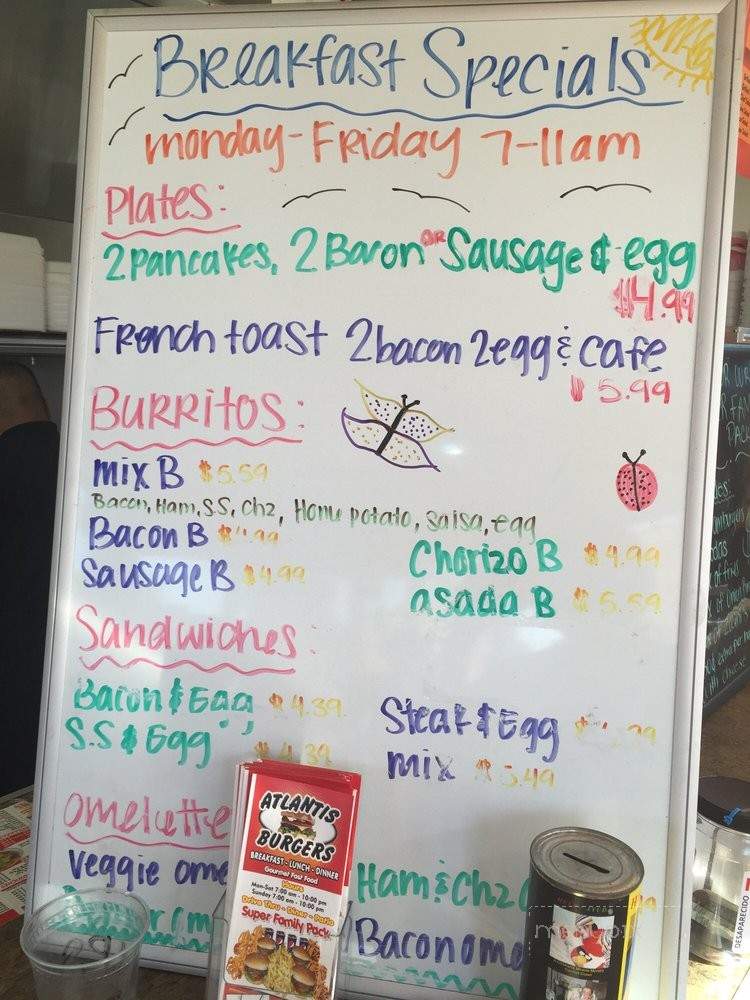 Breakfast Specials
Monday-Friday 7-11am
Plates:
2 Pancakes, 2 Bacon OR Sausage & egg
$4.99
French toast 2 bacon 2 egg & cafe
$5.99
Burritos:
mix B $5.59
Bacon, Ham, S.S, Chz, Home potato, salsa, egg
Bacon B $4.99
Sausage B $4.99
Chorizo B $4.99
asada B $5.59
Sandwiches:
Bacon & Egg $4.39
S.S & Egg $4.39
Steak & Egg
mix $5.49
Omelette
Veggie ome
Ham & Chz
Bacon ome
ATLANTIS
BURGERS
BREAKFAST - LUNCH - DINNER
Gourmet Fast Food
Hours
Mon-Sat 7:00 am - 10:00 pm
Sunday 7:00 am - 10:00 pm
Drive Thru - Dinner - Patio
Super Family Pack
DESAPARECIDO